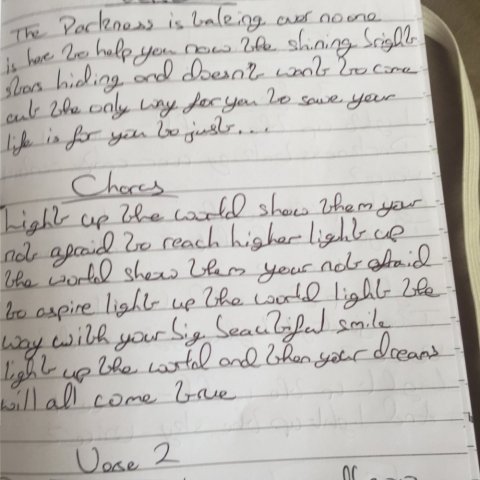 The Darkness is takeing over no one
is here to help you now the shining bright
stars hiding and doesn't want to come
out the only way for you to save your
life is for you to just...
Chorus
Light up the world show them your
not afraid to reach higher light up
the world show them your not afraid
to aspire light up the world light the
way with your big beautiful smile
light up the world and then your dreams
will all come true
Verse 2